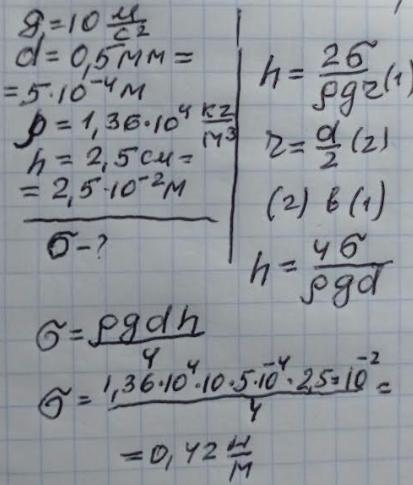 g = 10 м/с²
d = 0,5 мм =
= 5·10⁻⁴ м
ρ = 1,36·10⁴ кг/м³
h = 2,5 см =
= 2,5·10⁻² м
σ - ?
h = 2σ/ρgr (1)
r = d/2 (2)
(2) в (1)
h = 4σ/ρgd
σ = ρgdh/4
σ = 1,36·10⁴·10·5·10⁻⁴·2,5·10⁻²/4 =
= 0,42 Н/м